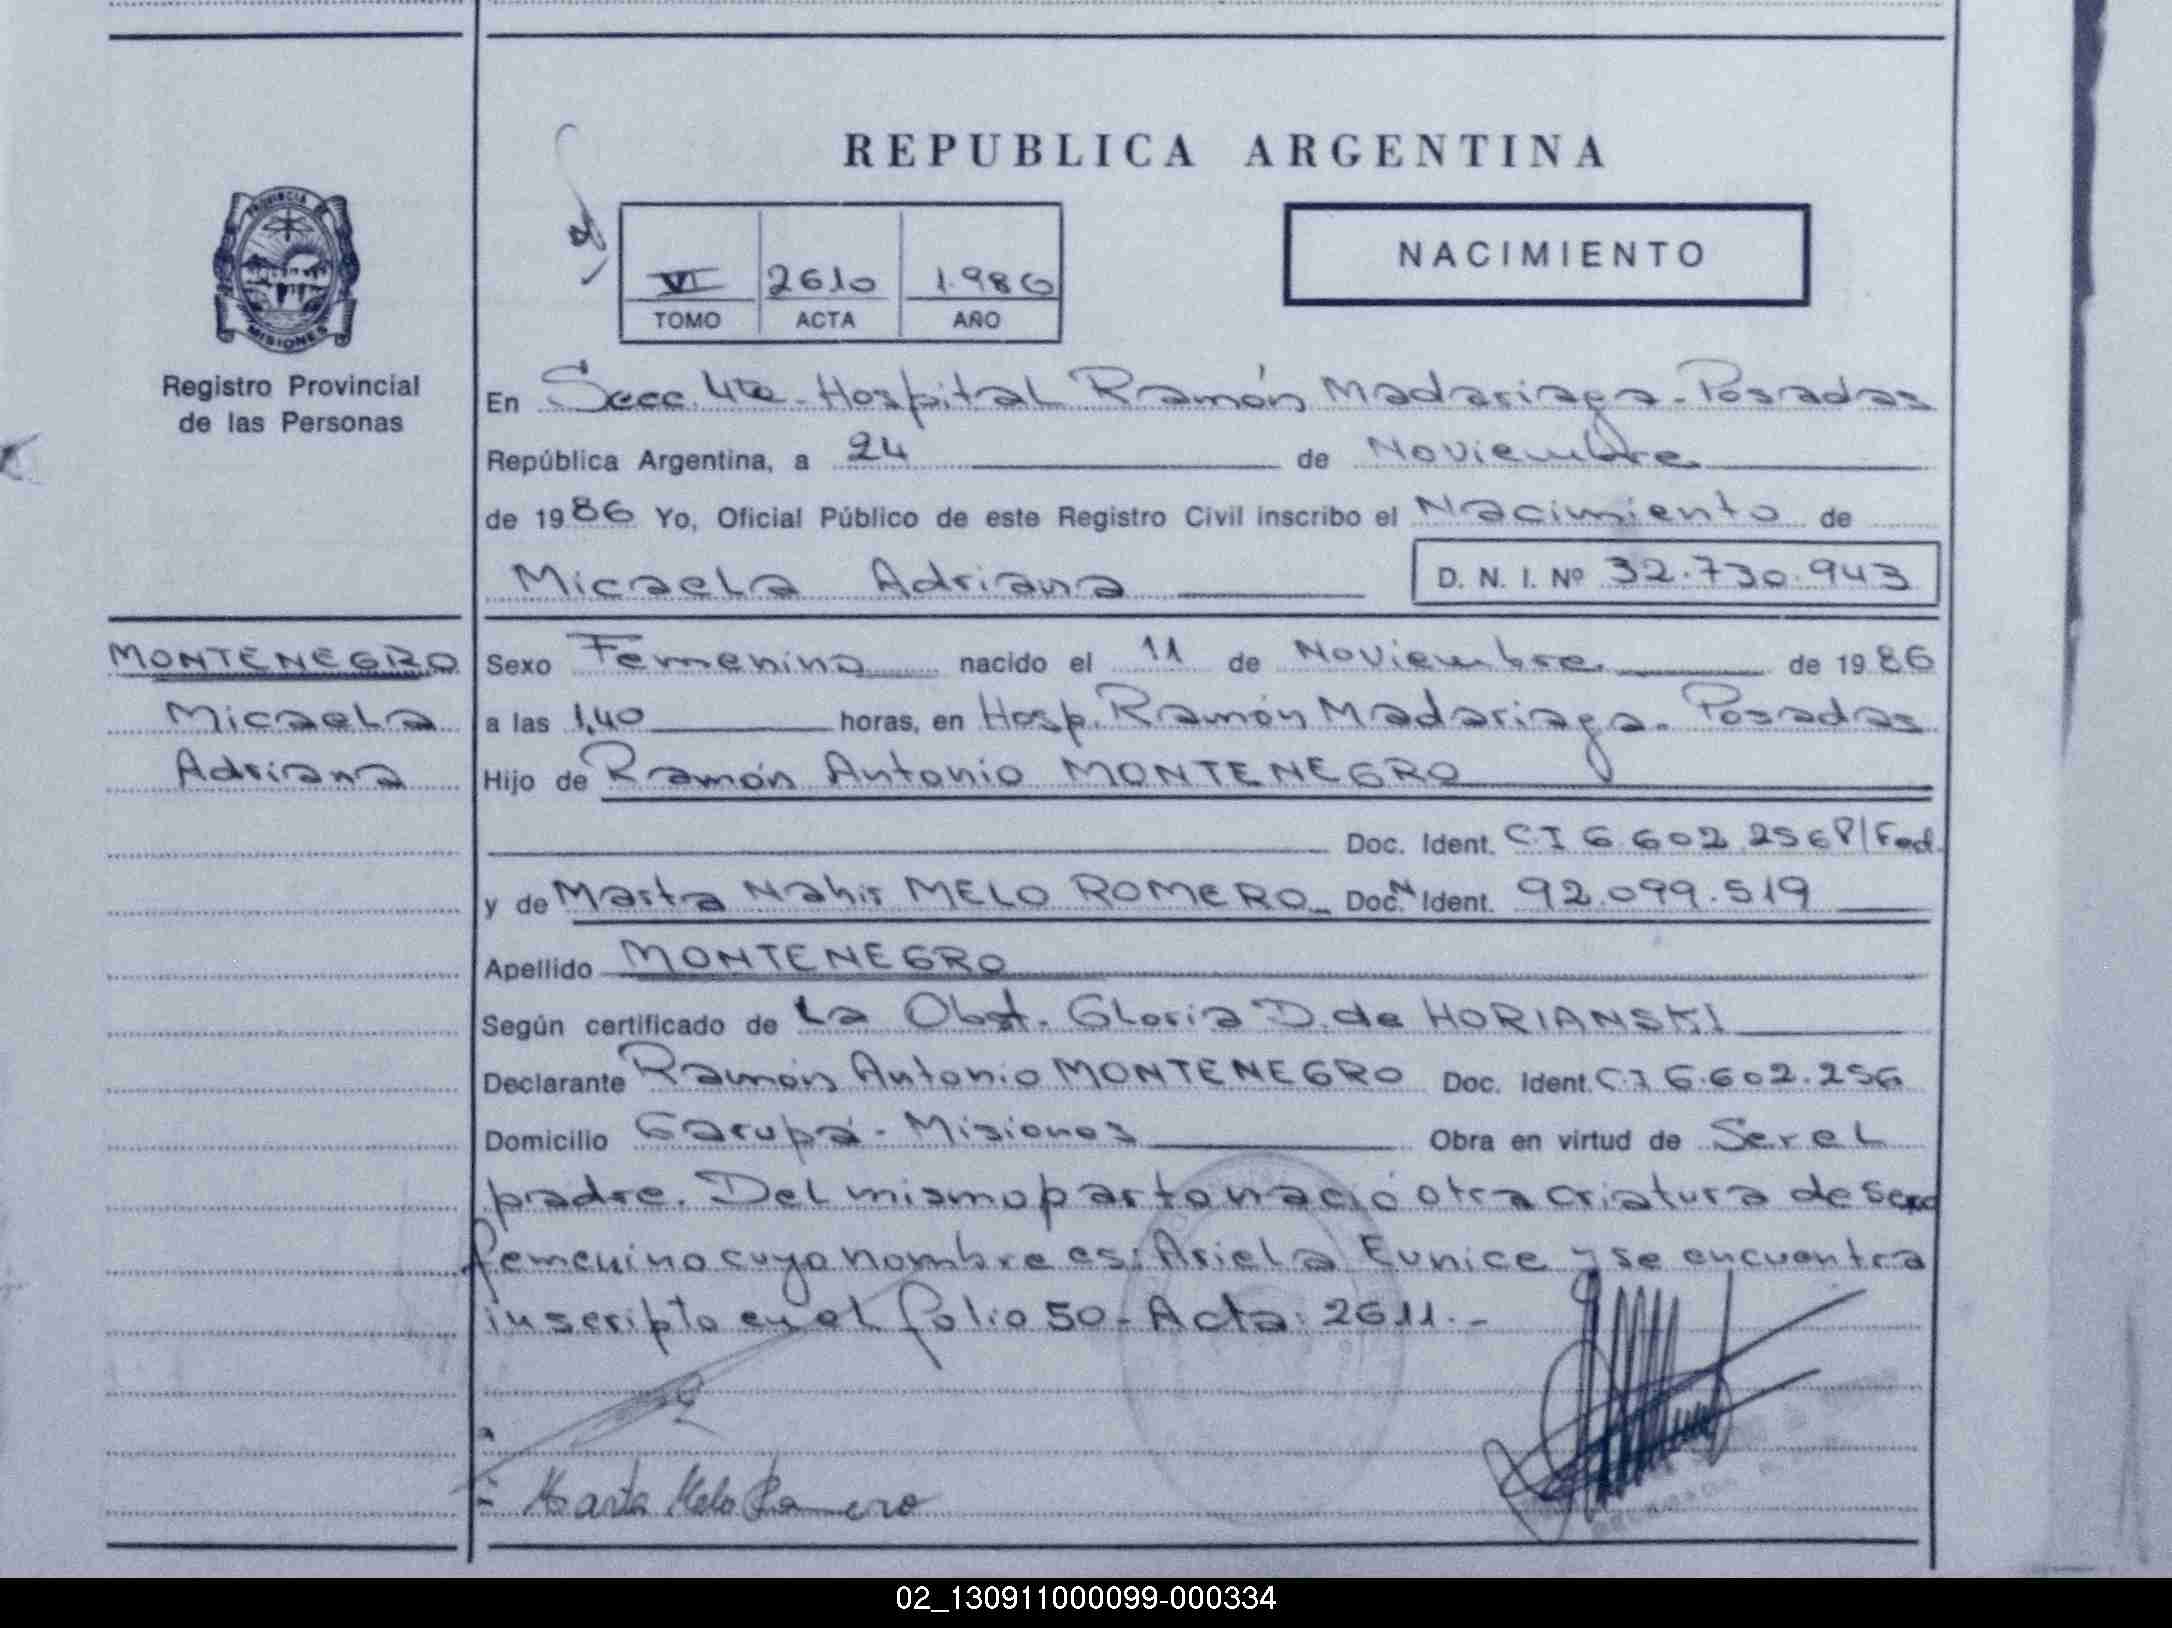 REPUBLICA ARGENTINA
PROVINCIA DE
MISIONES
Registro Provincial
de las Personas
VI 2610 1.986
TOMO ACTA AÑO
NACIMIENTO
En Secc. 4ta - Hospital Ramón Madariaga - Posadas
República Argentina, a 24 de Noviembre
de 1986 Yo, Oficial Público de este Registro Civil inscribo el Nacimiento de
Micaela Adriana D. N. I. Nº 32.730.943
MONTENEGRO
Micaela
Adriana
Sexo Femenino nacido el 11 de Noviembre de 1986
a las 1,40 horas, en Hosp. Ramón Madariaga - Posadas
Hijo de Ramón Antonio MONTENEGRO
Doc. Ident. C.I 6.602.256 P/Fed.
y de Marta Nahir MELO ROMERO Doc. N Ident. 92.099.519
Apellido MONTENEGRO
Según certificado de La Obst. Gloria D. de HORIANSKI
Declarante Ramón Antonio MONTENEGRO Doc. Ident. C.I 6.602.256
Domicilio Garupá - Misiones Obra en virtud de Ser el
padre. Del mismo parto nació otra criatura de sexo
femenino cuyo nombre es: Ariela Eunice y se encuentra
inscripto en el folio 50 - Acta: 2611.-
Marta Melo Romero
02_130911000099-000334